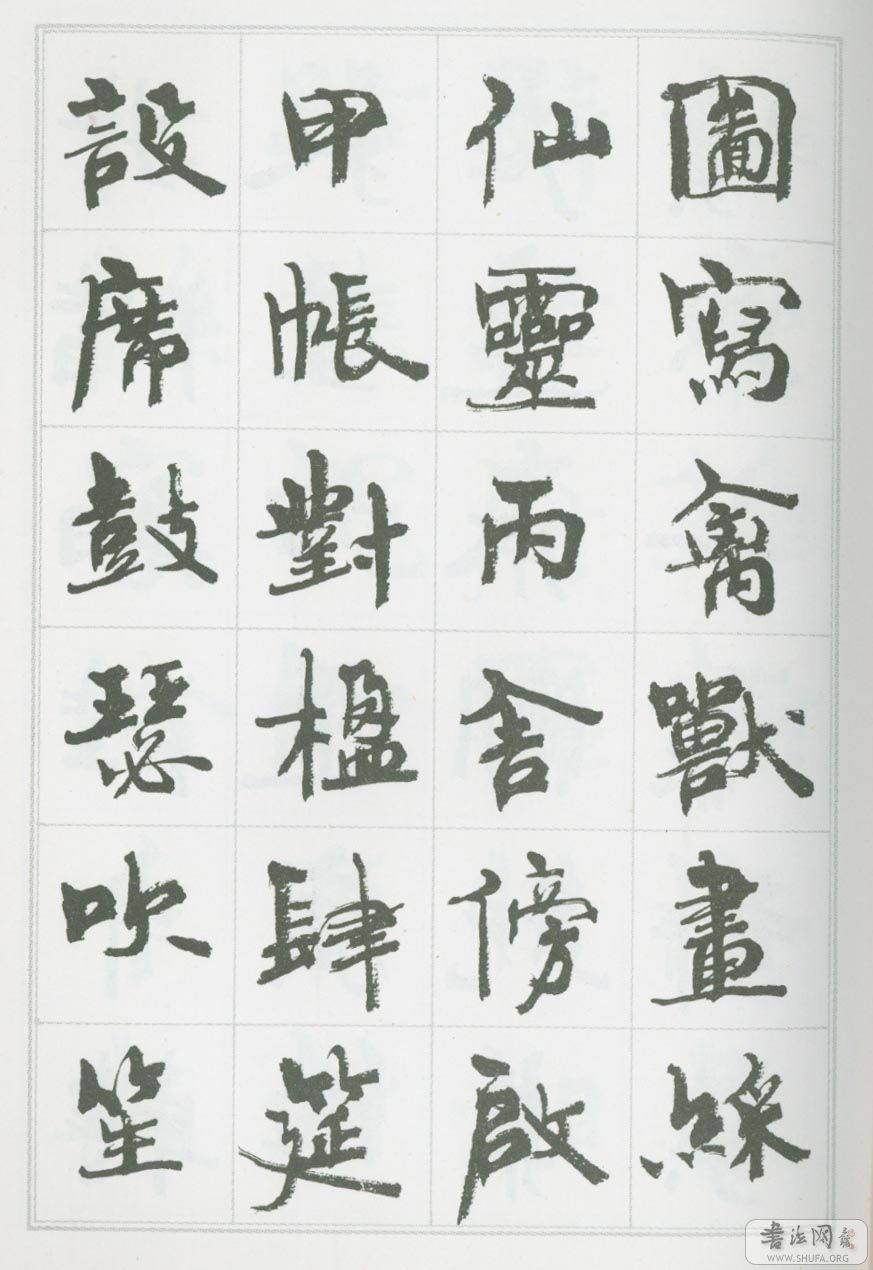 圖寫禽獸畫綵
仙靈丙舍傍啟
甲帳對楹肆筵
設席鼓瑟吹笙
書法网
WWW.SHUFA.ORG